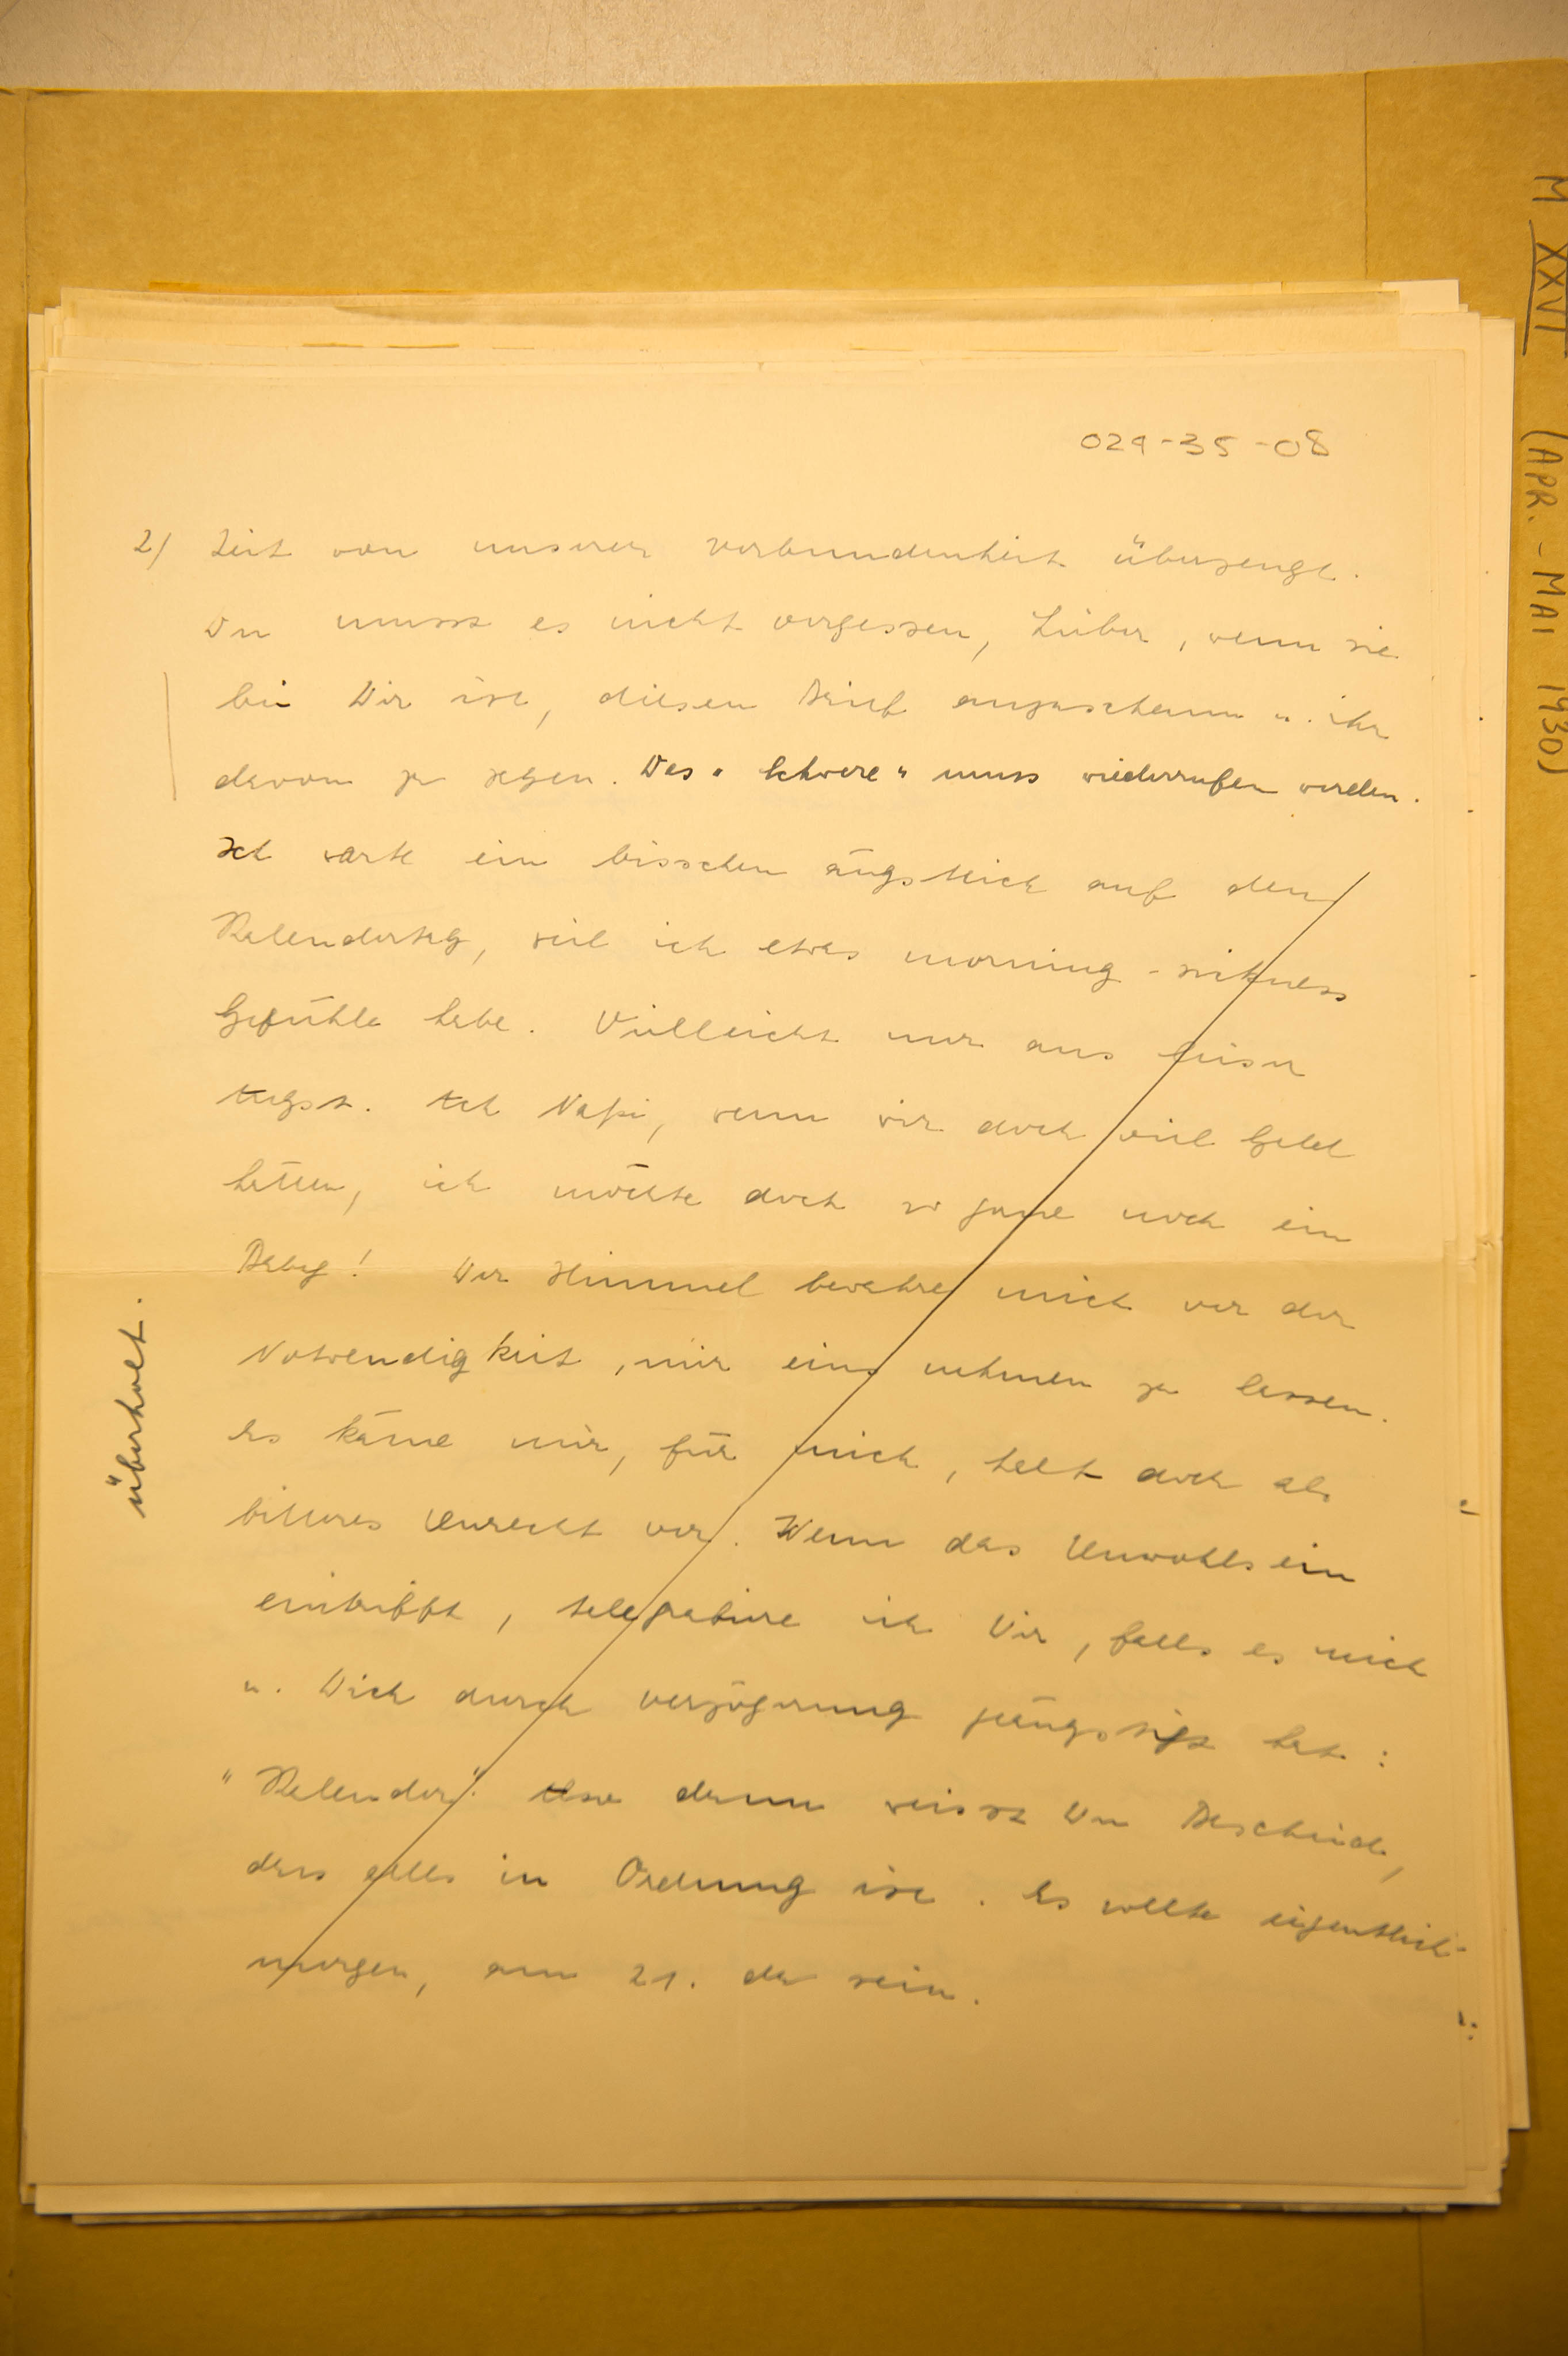 029-35-08
2) Zeit von unserer Verbundenheit überzeugt.
Du musst es nicht vergessen, Lieber, wenn sie
bei Dir ist, diesen Brief anzuschauen u. ihr
davon zu sagen. Das "Schwere" muss wiederrufen werden.
Ich warte ein bisschen ängstlich auf den
Kalendertag, weil ich etwas morning-sickness
Gefühle habe. Vielleicht nur aus leiser
Angst. Ach Napi, wenn wir doch viel Geld
hätten, ich möchte doch so gerne noch ein
Baby! Der Himmel bewahre mich vor der
Notwendigkeit, mir eins nehmen zu lassen.
Es käme mir, für mich, halt doch als
bitteres Unrecht vor. Wenn das Unwohlsein
eintrifft, telegrafiere ich Dir, falls es mich
u. Dich durch Verzögerung geängstigt hat:
"Kalender". Also dann weisst Du Bescheid,
dass alles in Ordnung ist. Es wollte eigentlich
morgen, am 21. da sein.
überholt.
M XXVI (APR. - MAI 1930)